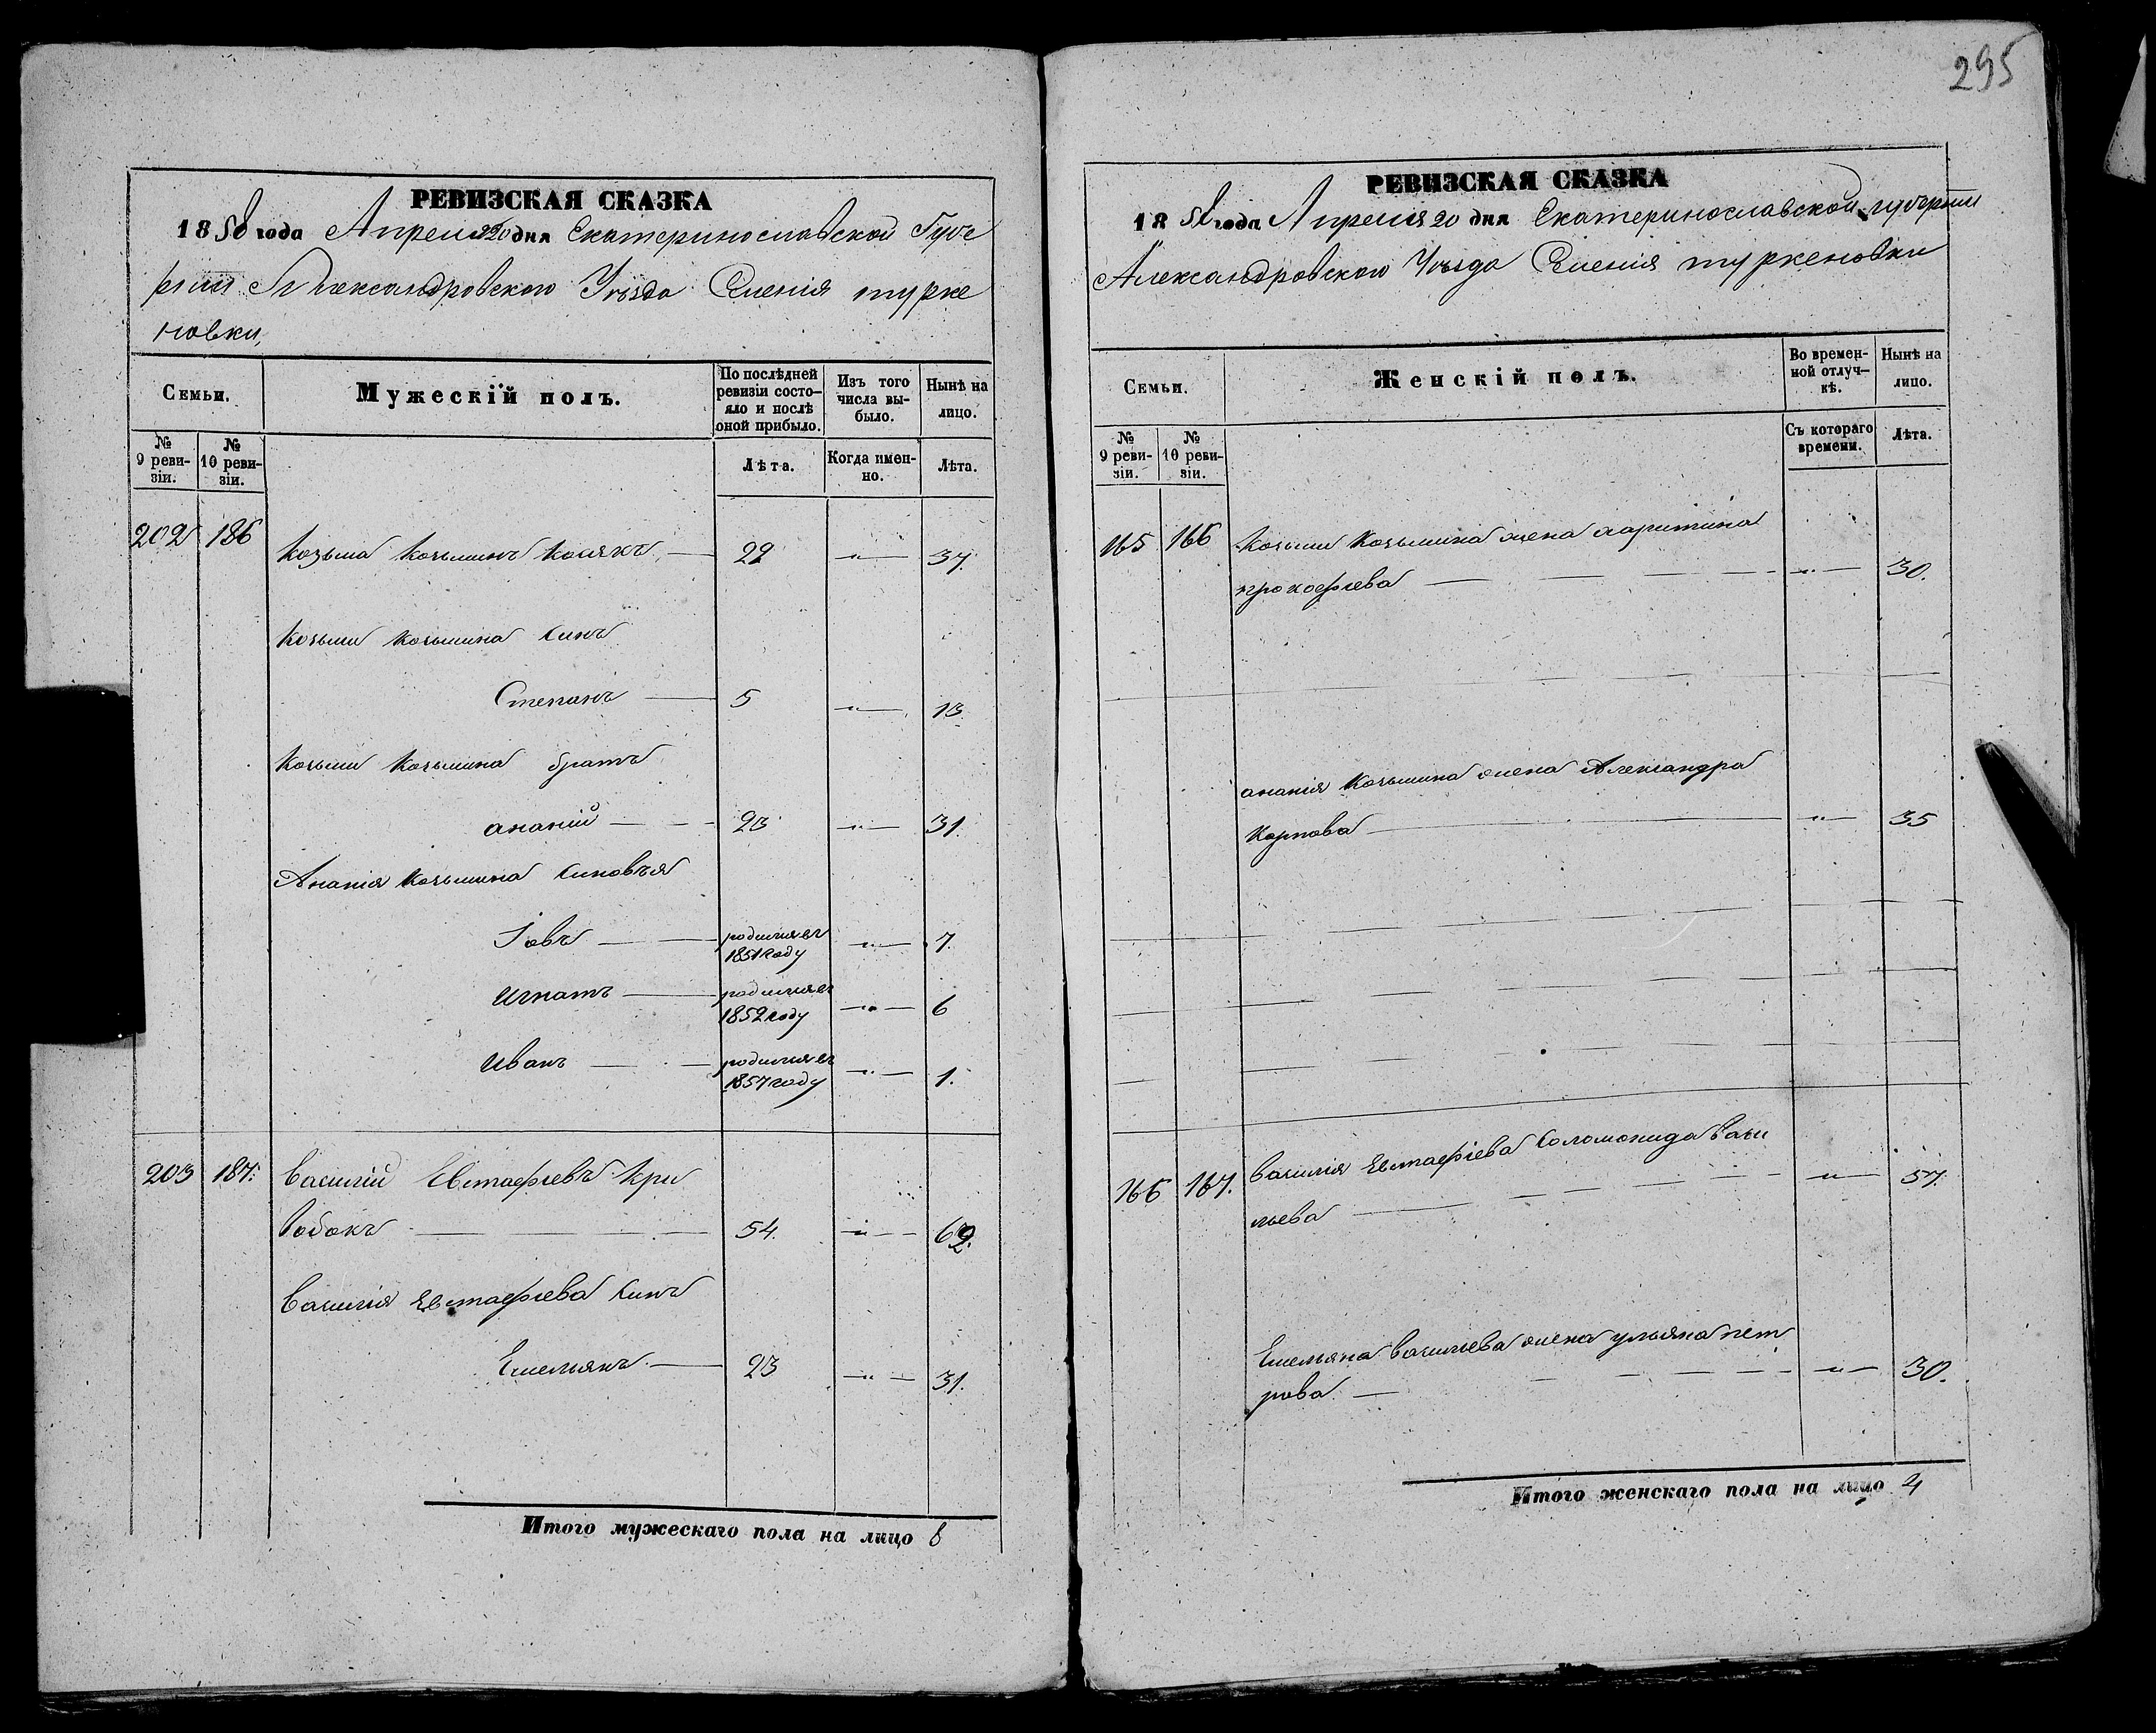 295
РЕВИЗСКАЯ СКАЗКА
1858 года Апреля 20 дня Екатеринославской Губе
рнии Александровского Уезда Силения турке
новки,
Семьи.
Мужескій полъ.
По послѣдней ревизіи состо-яло и послѣ оной прибыло.
Изъ того числа вы-было.
Нынѣ на лицо.
№ 9 реви-зіи.
№ 10 реви-зіи.
Лѣта.
Когда имен-но.
Лѣта.
202 186 Козьма Козьминъ Косякъ — 29 —„— 37.
Козьми Козьмина Синъ
Степанъ — 5 —„— 13
Козьми Козьмина братъ
ананий — — 23 —„— 31.
Анания Козьмина Синовъя
Іовъ — — родился въ —„— 7.
1851 году
Игнатъ — родился въ —„— 6
1852 году
Иванъ — — родился въ —„— 1.
1857 году
203 187. Василий Евстафиевъ Кри
вобокъ — — — 54. —„— 62.
Василия Евстафиева Синъ
Емельянъ — 23 —„— 31.
Итого мужескаго пола на лицо 8
РЕВИЗСКАЯ СКАЗКА
1858 года Апреля 20 дня Екатеринославской губернии
Александровского Уезда Силения туркеновки
Семьи.
Женскій полъ.
Во времен-ной отлуч-кѣ.
Нынѣ на лицо.
№ 9 реви-зіи.
№ 10 реви-зіи.
Съ котораго времени.
Лѣта.
165 166 Козьми Козьмина жена харитина
прокофиева — — — —„— 30.
анания Козьмина жена Александра
Карпова — —„— 35
166 167. Василия Евстафиева Соломонида Васи
льева — — — —„— 57.
Емельяна Васильева жена ульяна пет
рова — — — —„— 30.
Итого женскаго пола на лицо 4